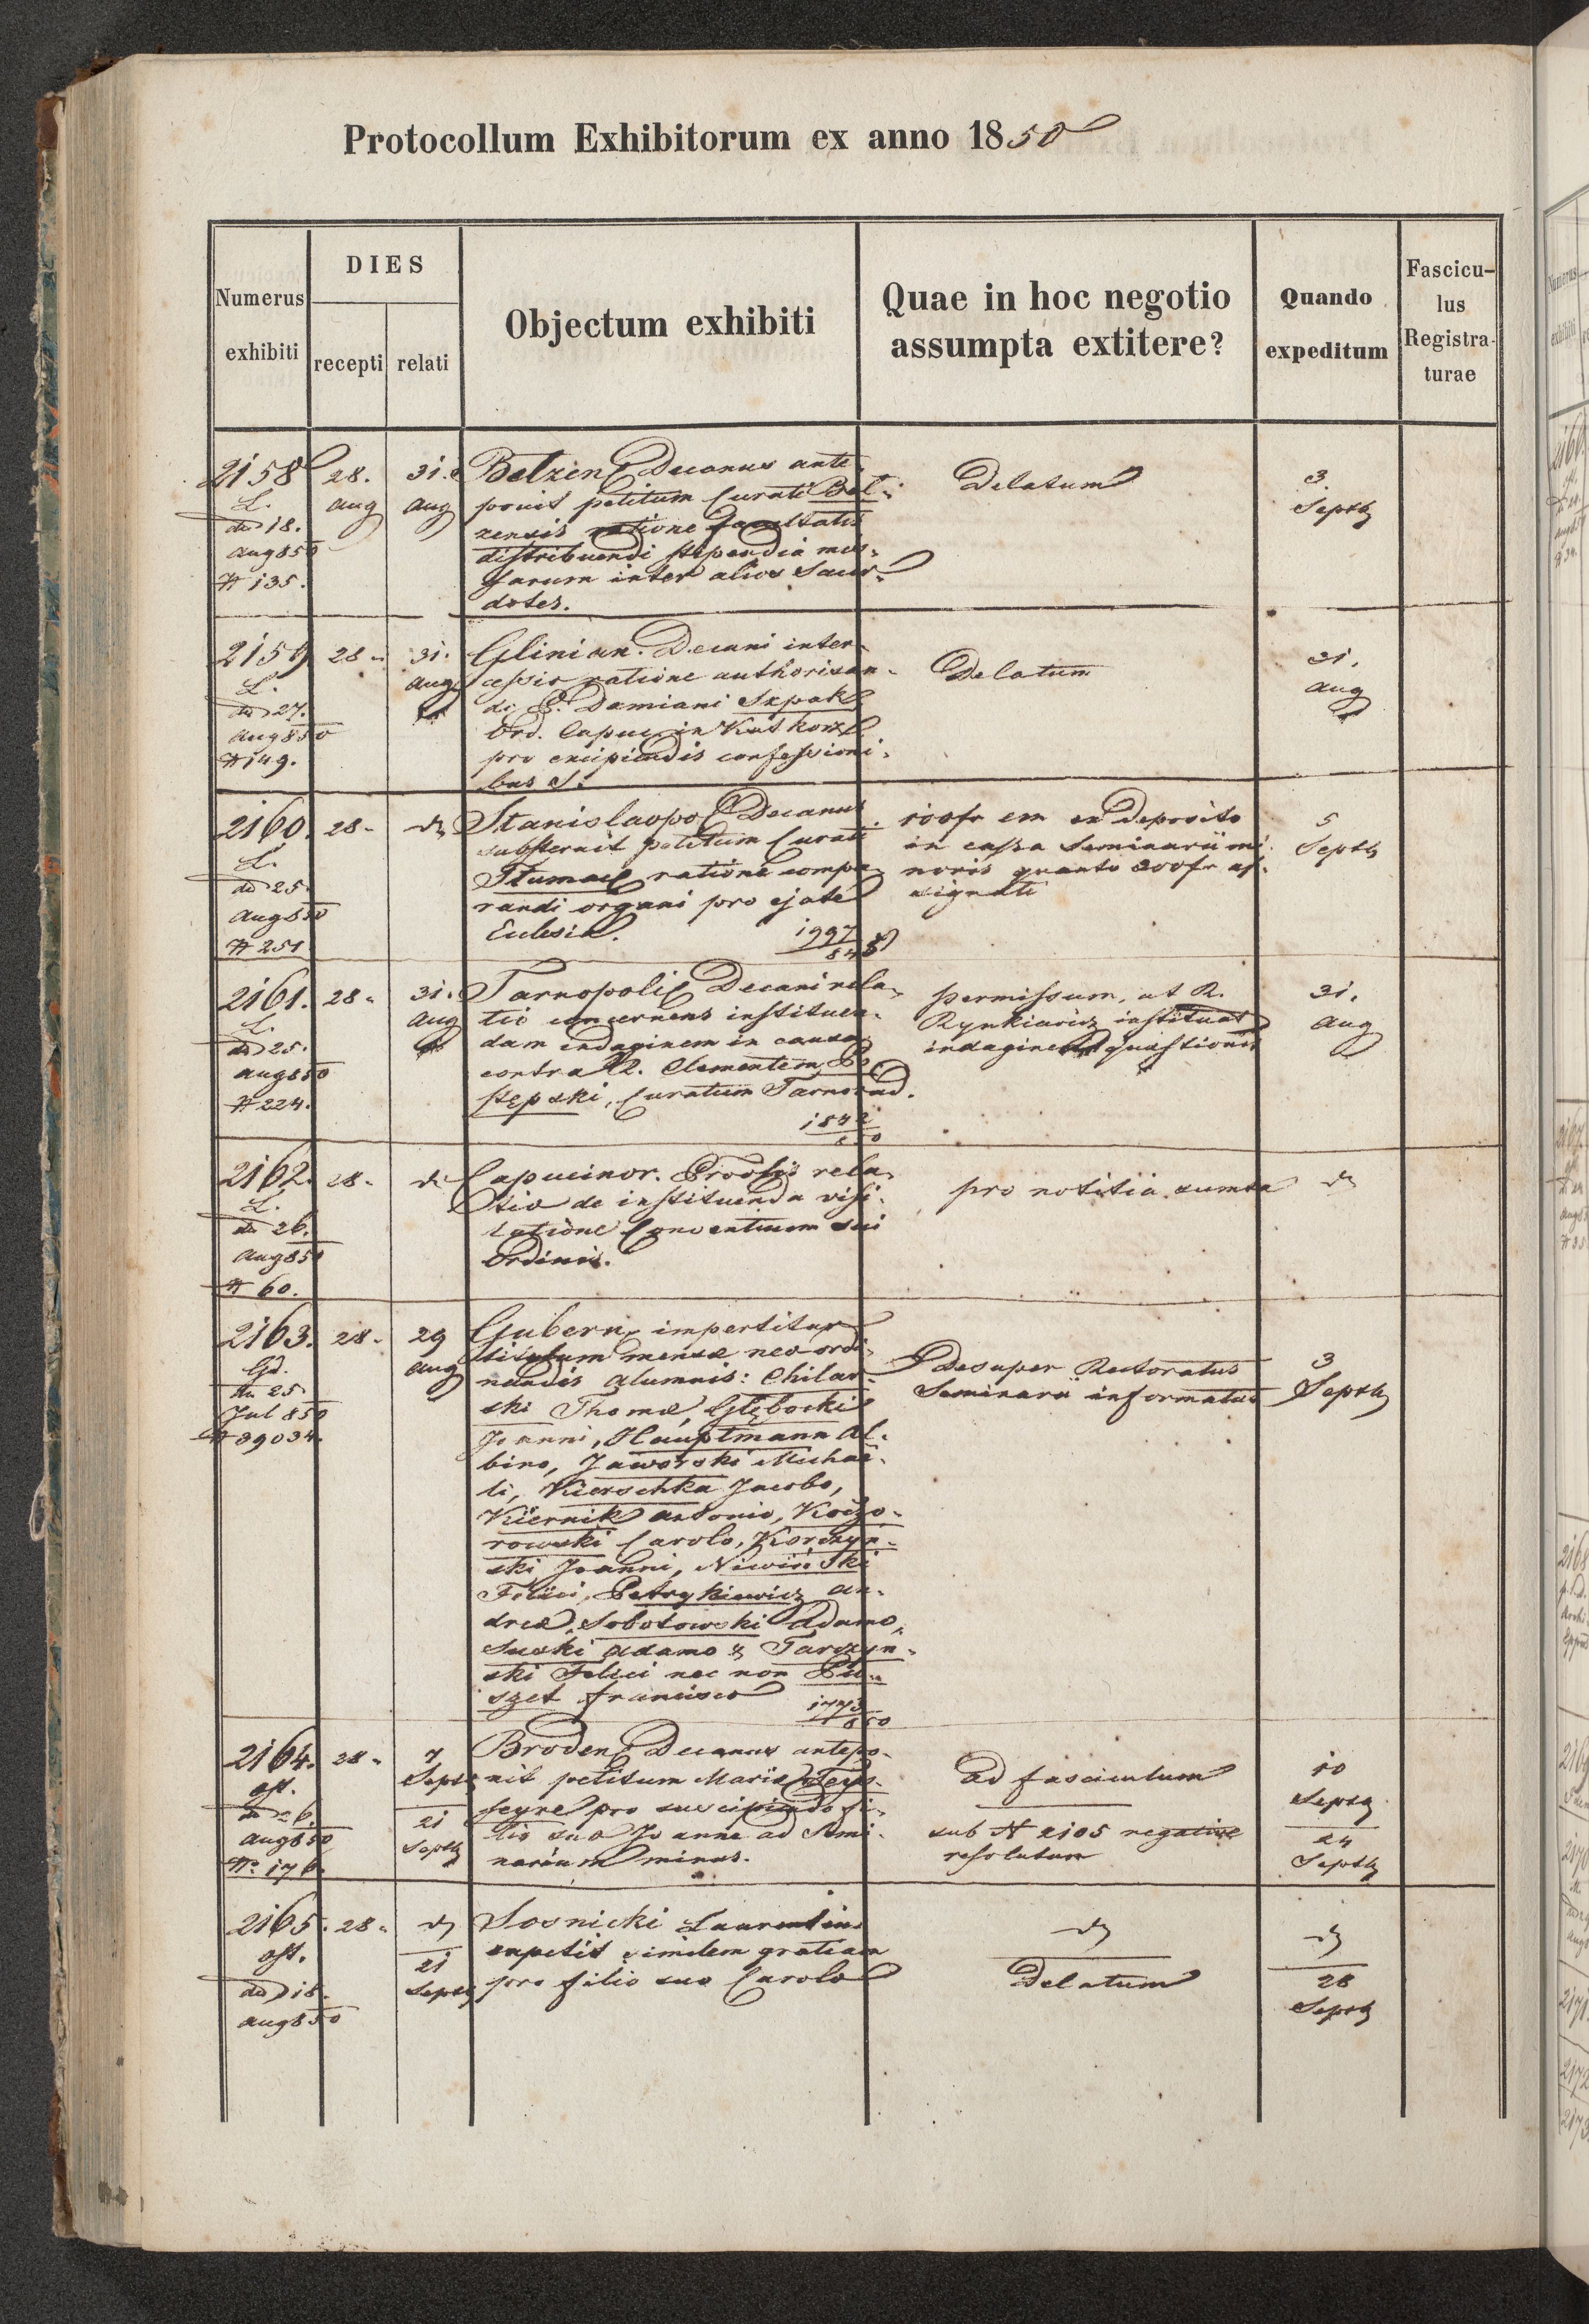 Protocollum Exhibitorum ex anno 1850
Numerus exhibiti
DIES
recepti
relati
Objectum exhibiti
Quae in hoc negotio assumpta extitere?
Quando expeditum
Fascicu-
lus
Registra-
turae
2158
L.
dd 18.
Aug 850
N 135.
28.
Aug
31.
Aug
Belzen Decanus ante
ponit petitum Curati Bel-
zensis ratione facultatis
distribuendi stipendia mis-
sarum inter alios Sacer-
dotes.
Delatum
3.
Septb
2159
L.
dd 27.
Aug 850
N 149.
28
31.
Aug
Glinian. Decani inter-
cessio ratione authorisan-
di P. Damiani Szpak
Ord. Capuc. in Kutkorz
pro excipiendis confessioni-
bus S.
Delatum
31.
Aug
2160.
L.
dd 25
Aug 850
N 251
28
Stanislaopol Decanus
substernit petitum Curati
Tłumac ratione compa-
randi organi pro ejate
Eclesia.
1997
100 fr cm ex deposito
in cassa Seminarii mi-
noris quanto 200 fr as-
signati
5
Septb
2161.
L.
dd 25.
Aug 850
N 224.
28
31.
Aug
Tarnopoli Decani rela-
tio concernens instituen-
dam indaginem in causa
contra R. Clementem Po-
stępski, Curatum Tarnorud.
1842
850
permissum, ut R.
Rynkiewicz instituat
indaginem quaestionis
31.
Aug
2162.
L.
dd 26.
Aug 850
N 60.
28
Capucinor. Provlis rela-
tio de instituenda visi-
tatione Conventuum sui
Ordinis.
pro notitia sumta
2163.
Gd.
dd 25
Jul 850
N 39034.
28
29
Aug
Gubern. impertitur
titulum mensae neo ordi-
nandis alumnis: Chilar-
ski Thomae, Głębocki
Joanni, Hauptmann Al-
bino, Jaworski Michae-
li, Kierschka Jacobo,
Kiernik Antonio, Koczo-
rowski Carolo, Korczyn-
ski Joanni, Niwiński
Felici, Petrykiewicz An-
dreae, Sobotowski Adamo,
Suski Adamo & Tarczyn-
ski Felici nec non Pu-
szet Francisco
1773
850
Desuper Rectoratus
Seminarii informatus
3
Septb
2164.
ost.
dd 6.
Aug 850
No. 176.
28
7
Septb
21
Septb
Broden Decanus antepo-
nit petitum Mariae Teys-
seyre pro suscipiendo fi-
lio suo Joanne ad Semi-
narium minus.
ad fasciculum
sub N 2105 negative
resolutum
10
Septb
24
Septb
2165.
ost.
dd 18.
Aug 850
28
21
Septb
Sosnicki Laurentius
expetit eimdem gratiam
pro filio suo Carolo
Delatum
28
Septb